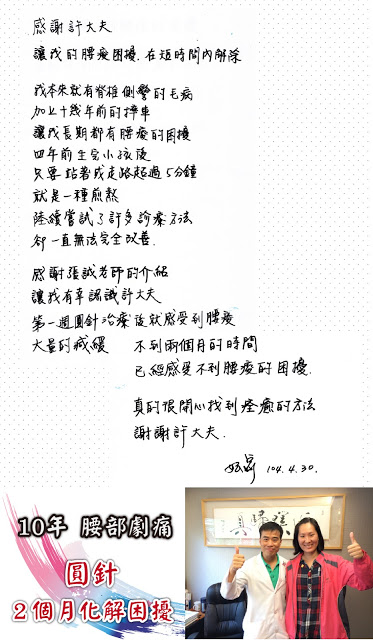 感謝許大夫
讓我的腰痠困擾. 在短時間內解除
我本來就有脊椎側彎的毛病
加上十幾年前的撞車
讓我長期都有腰痠的困擾
四年前生完小孩後
只要站著或走路超過5分鐘
就是一種煎熬
陸續嘗試了許多診療方法
卻一直無法完全改善.
感謝張誠老師的介紹
讓我有幸認識許大夫
第一週圓針治療後就感受到腰痠
大量的減緩 不到兩個月的時間
已經感受不到腰痠的困擾.
真的很開心找到痊癒的方法
謝謝許大夫.
104.4.30.
10年 腰部劇痛
圓針
2個月化解困擾